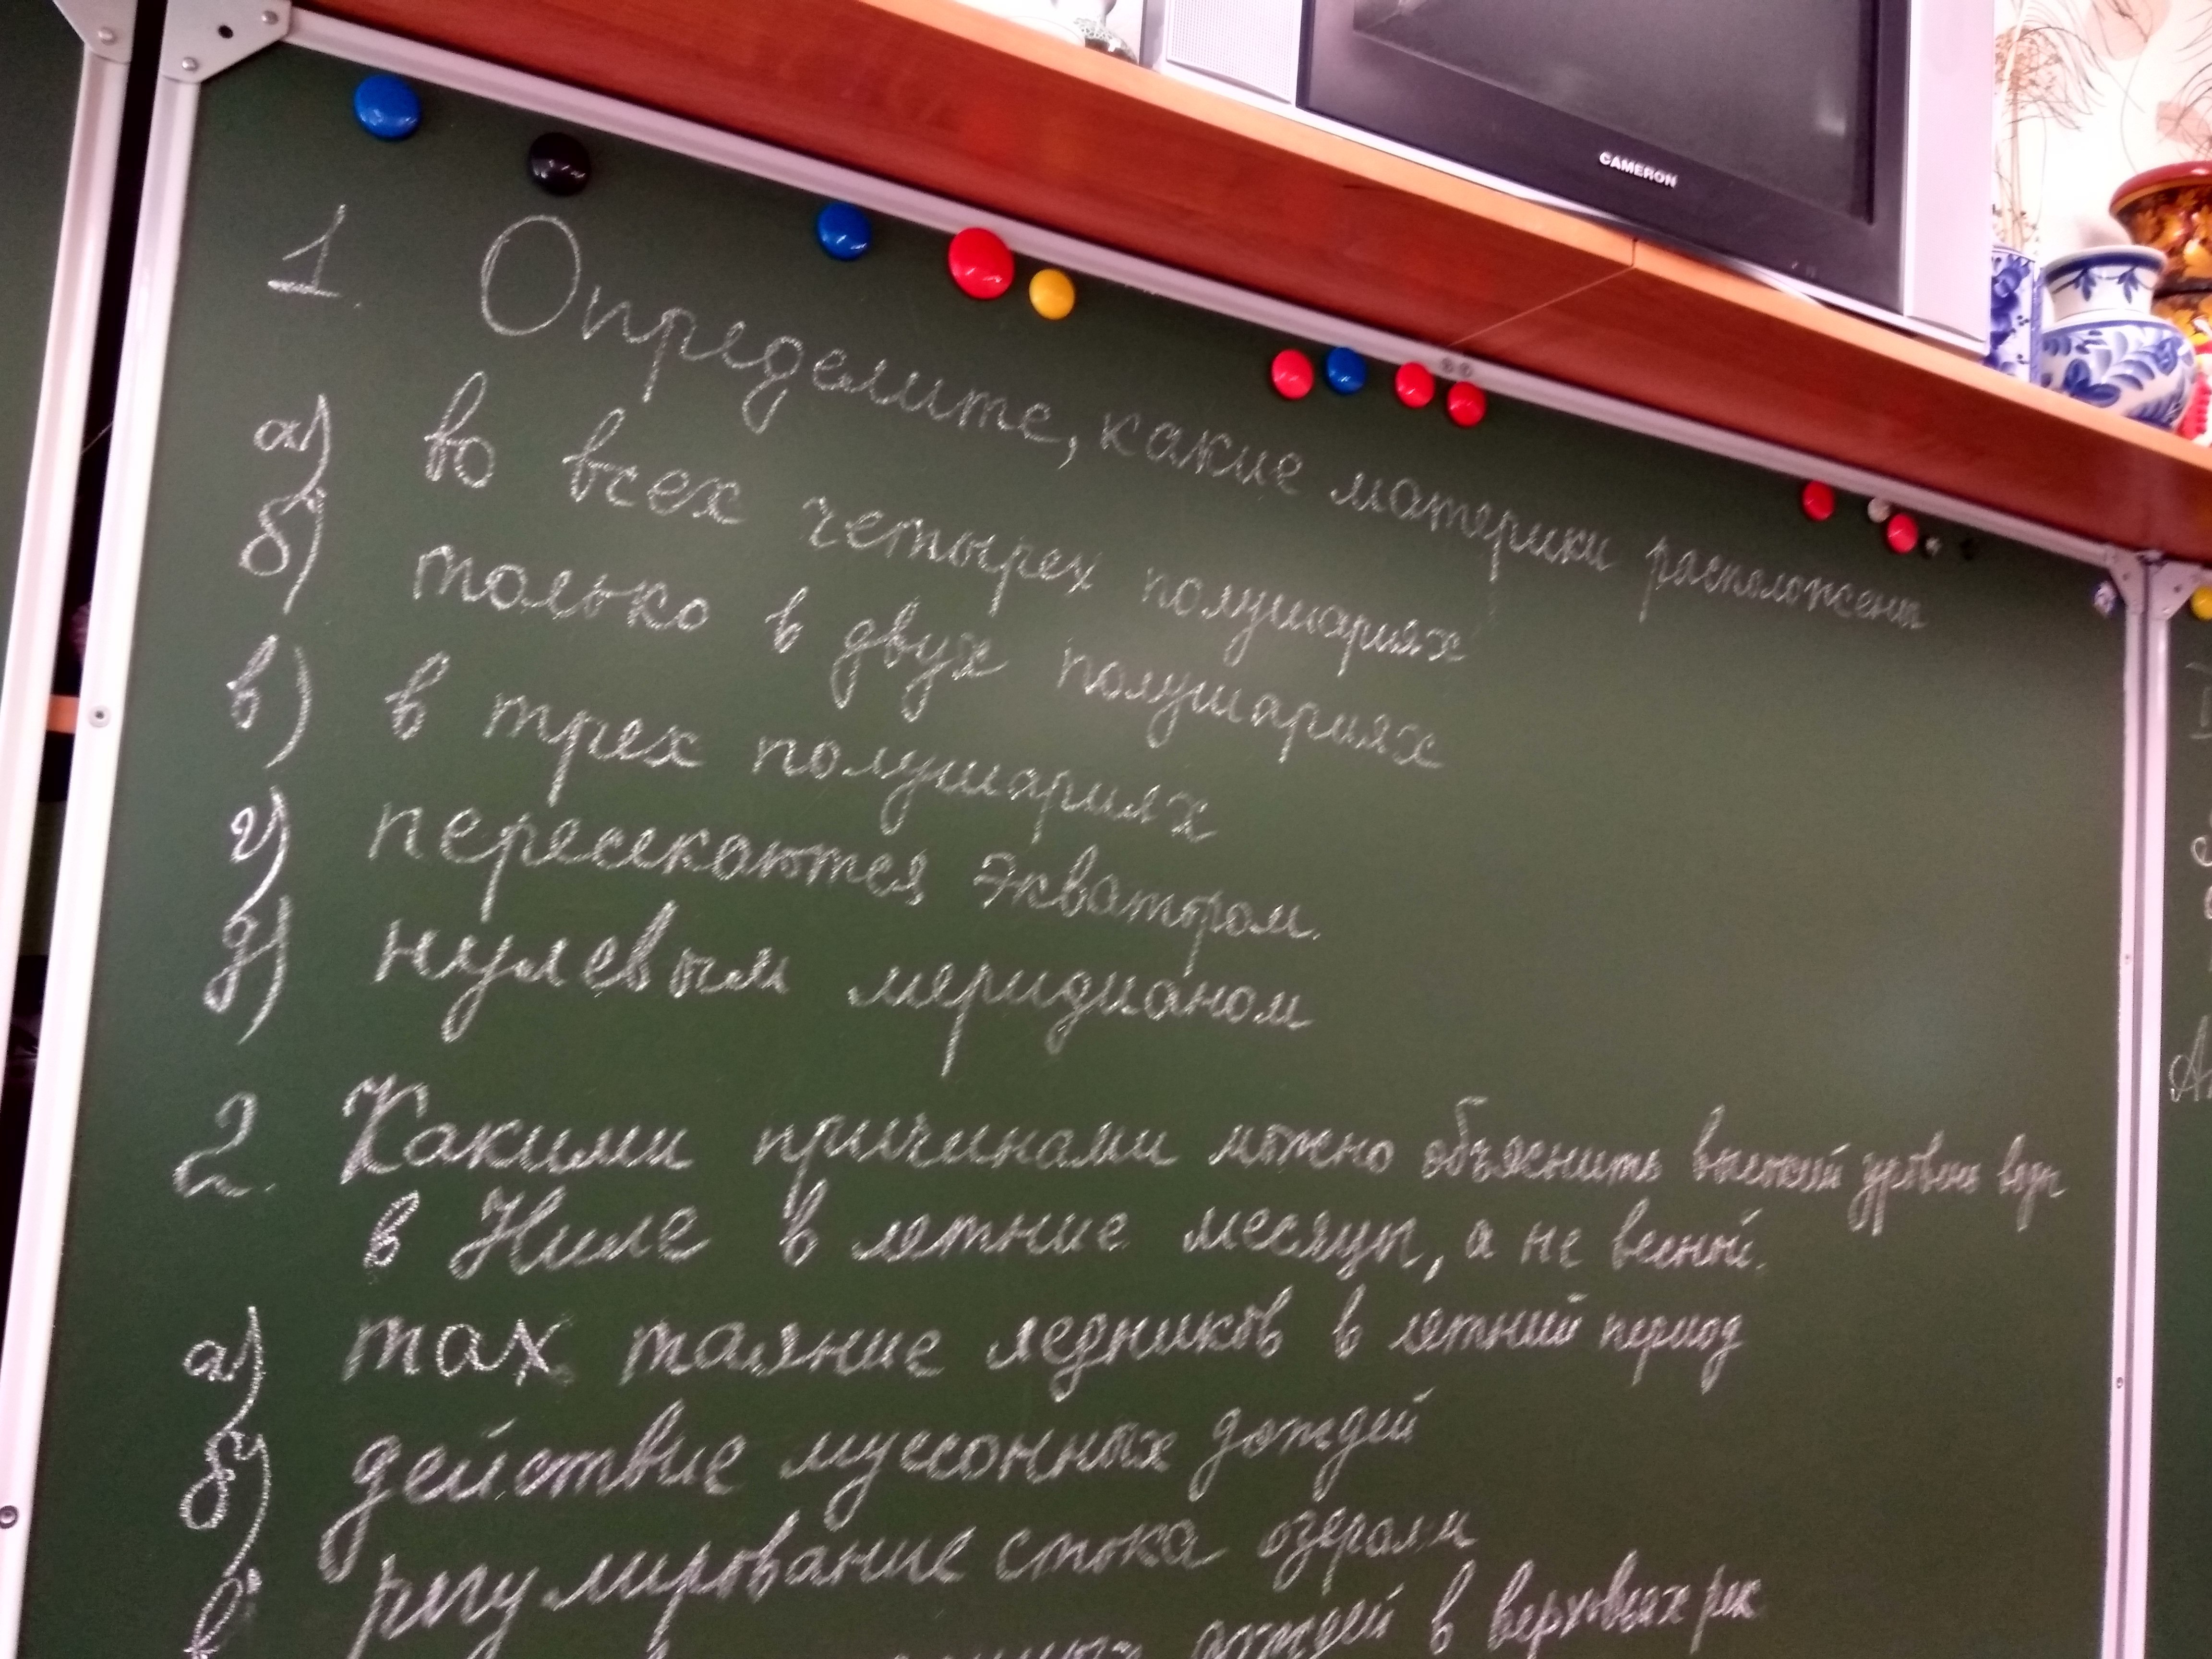 CAMERON
1. Определите, какие материки расположены
а) во всех четырех полушариях
б) только в двух полушариях
в) в трех полушариях
г) пересекаются экватором.
д) нулевым меридианом
2. Какими причинами можно объяснить высокий уровень воды
в Ниле в летние месяцы, а не весной.
а) max таяние ледников в летний период
б) действие муссонных дождей
в) регулирование стока озерами
дождей в верховьях рек